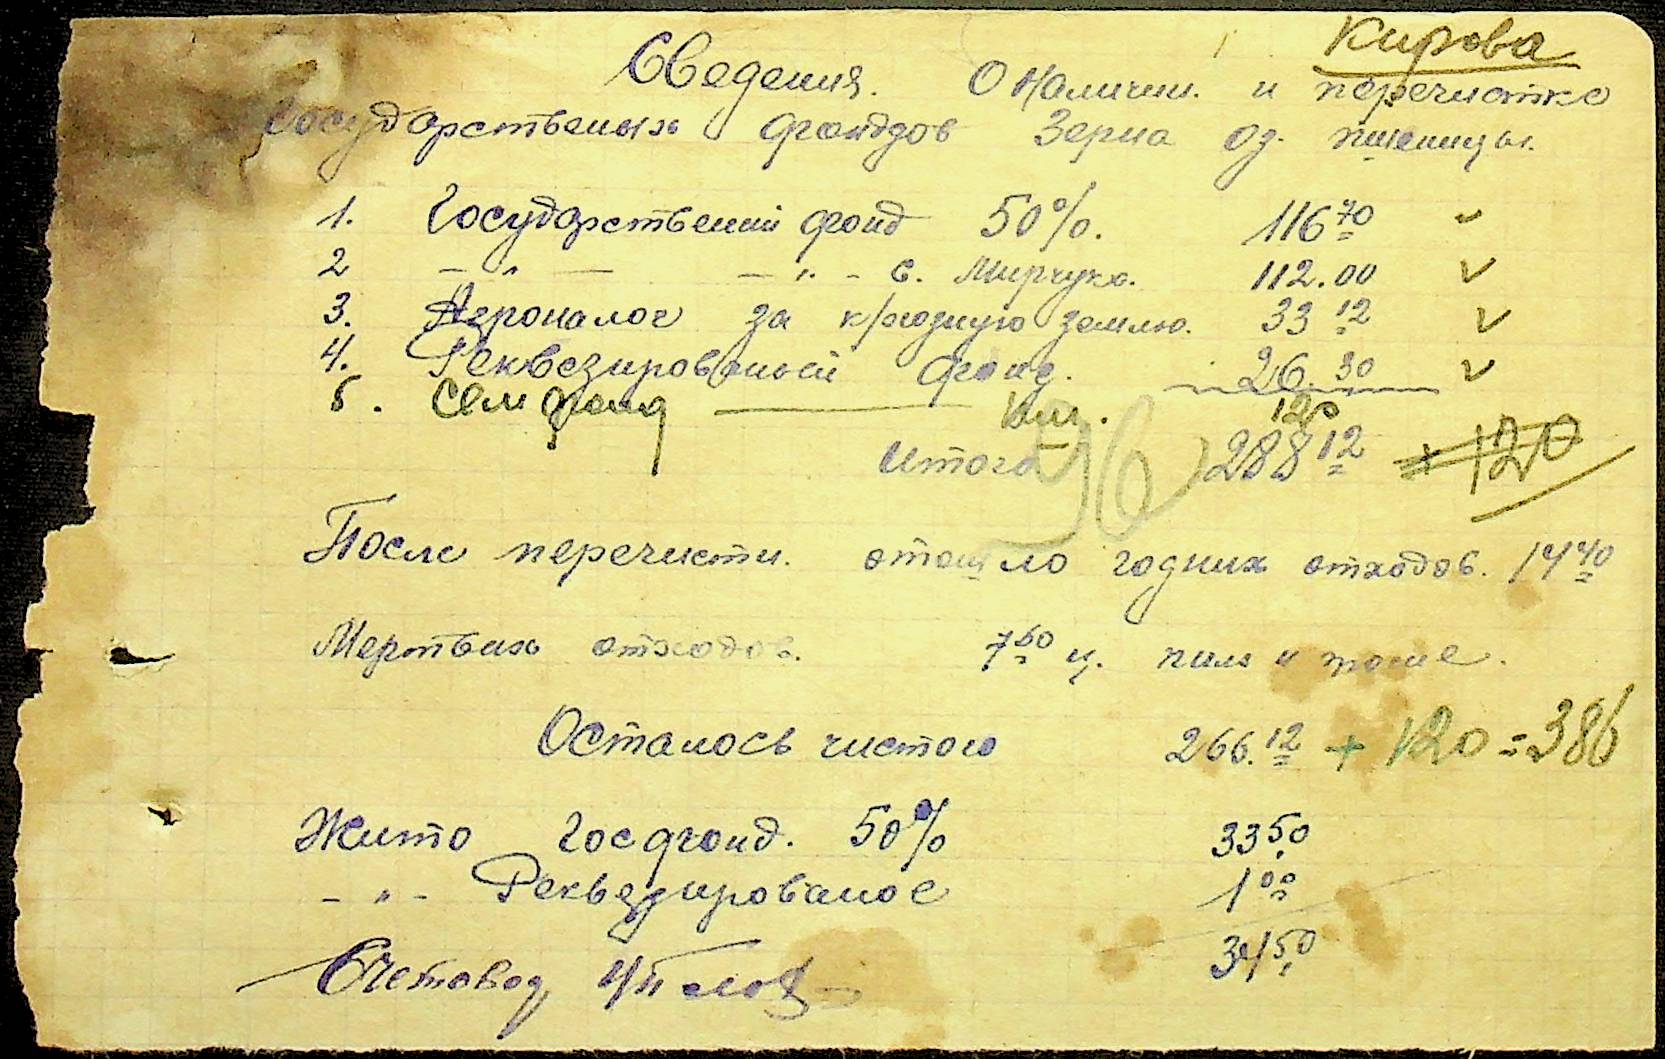 Кирова
Сведения. О Наличии. и перечистке
Государственых фондов Зерна оз. пшеницы.
1. Государствений фонд 50%. 116 70 ✓
2 — " — — " - с. Мирчука. 112.00 ✓
3. Агроналог за к/родную землю. 33 12 ✓
4. Реквезированый фонд. 26. 30 ✓
5. Сем фонд — 120
Итого 288 12 + 120
После перечистки. отошло годних отходов. 14 40
Мертвих отходов. 7 60 ц. пили и
Осталось чистого 266. 12 + 120 = 386
Жито Госфонд. 50% 33 50
- " - Реквезированое 1 00
34 50
Счетовод